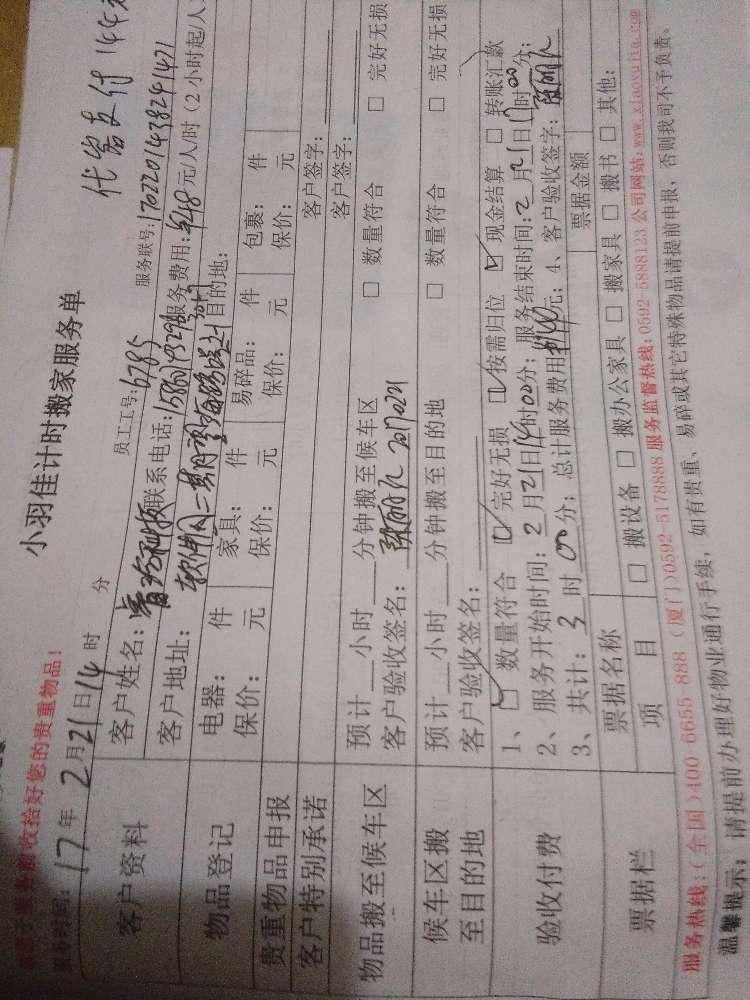 代客支付 144元
小羽佳计时搬家服务单
收拾好您的贵重物品！
服务时间：17年2月21日14时 分 员工工号：6785 服务联号：1702201438291421
客户资料
客户姓名： 联系电话： 服务费用：48元/人/时（2小时起/人
客户地址：软件园二期 目的地：
物品登记
电器： 件 家具： 件 易碎品： 件 包裹： 件
保价： 元 保价： 元 保价： 元 保价： 元
贵重物品申报 客户签字：
客户特别承诺 客户签字：
物品搬至候车区
预计 小时 分钟搬至候车区 □ 数量符合 □ 完好无损
客户验收签名： 20170221
候车区搬至目的地
预计 小时 分钟搬至目的地 □ 数量符合 □ 完好无损
客户验收签名：
验收付费
1、☑ 数量符合 ☑ 完好无损 ☑ 按需归位 ☑ 现金结算 □ 转账汇款
2、服务开始时间：2月21日14时00分；服务结束时间：2月21日17时00分；
3、共计：3时00分；总计服务费用：144元；4、客户验收签字：
票据栏
票据名称 票据金额
项目 □ 搬设备 □ 搬办公家具 □ 搬家具 □ 搬书 □ 其他：
服务热线：（全国）400-6655-888 （厦门）0592-5178888 服务监督热线：0592-5888123 公司网站：www.xiaoyujia.com
温馨提示：请提前办理好物业通行手续，如有贵重、易碎或其它特殊物品请提前申报，否则我司不予负责。